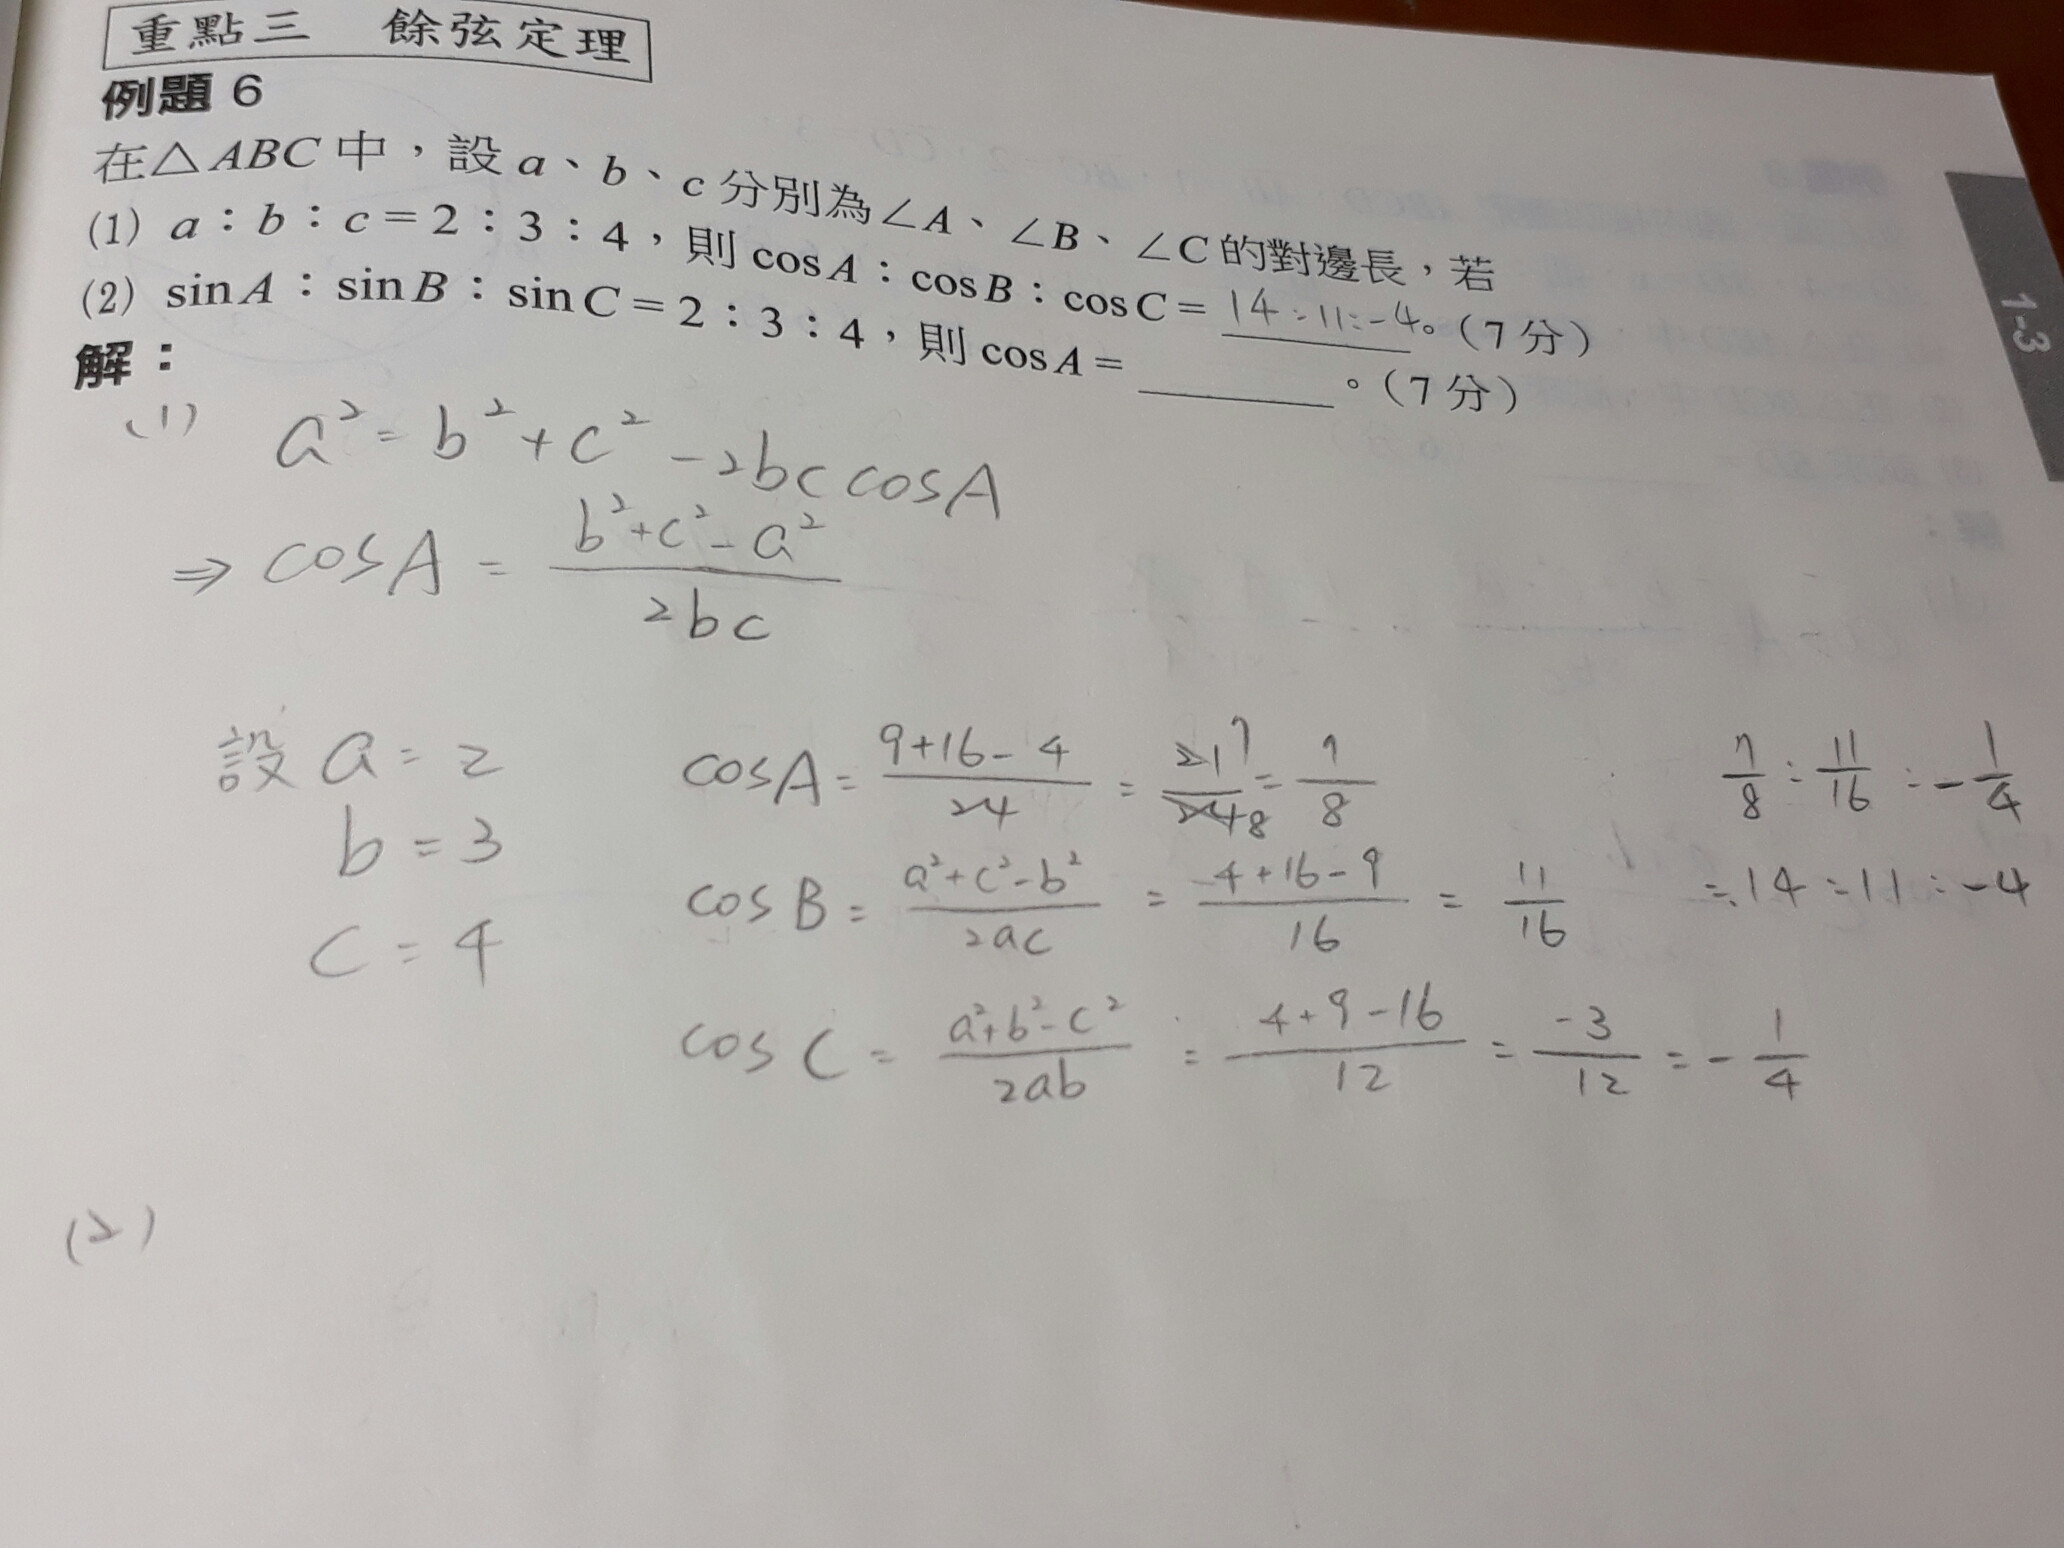 重點三 餘弦定理
例題 6
在△ABC 中，設 a、b、c 分別為∠A、∠B、∠C 的對邊長，若
(1) a：b：c＝2：3：4，則 cosA：cosB：cosC＝14:11:-4。(7 分)
(2) sinA：sinB：sinC＝2：3：4，則 cosA＝______。(7 分)
解：
(1) a² = b² + c² - 2bc cosA
⇒ cosA = (b²+c²-a²)/(2bc)
設 a = 2
b = 3
c = 4
cosA = (9+16-4)/24 = 21 7/24 8 = 7/8
cosB = (a²+c²-b²)/(2ac) = (4+16-9)/16 = 11/16
cosC = (a²+b²-c²)/(2ab) = (4+9-16)/12 = -3/12 = -1/4
7/8 : 11/16 : -1/4
= 14 : 11 : -4
(2)
1-3